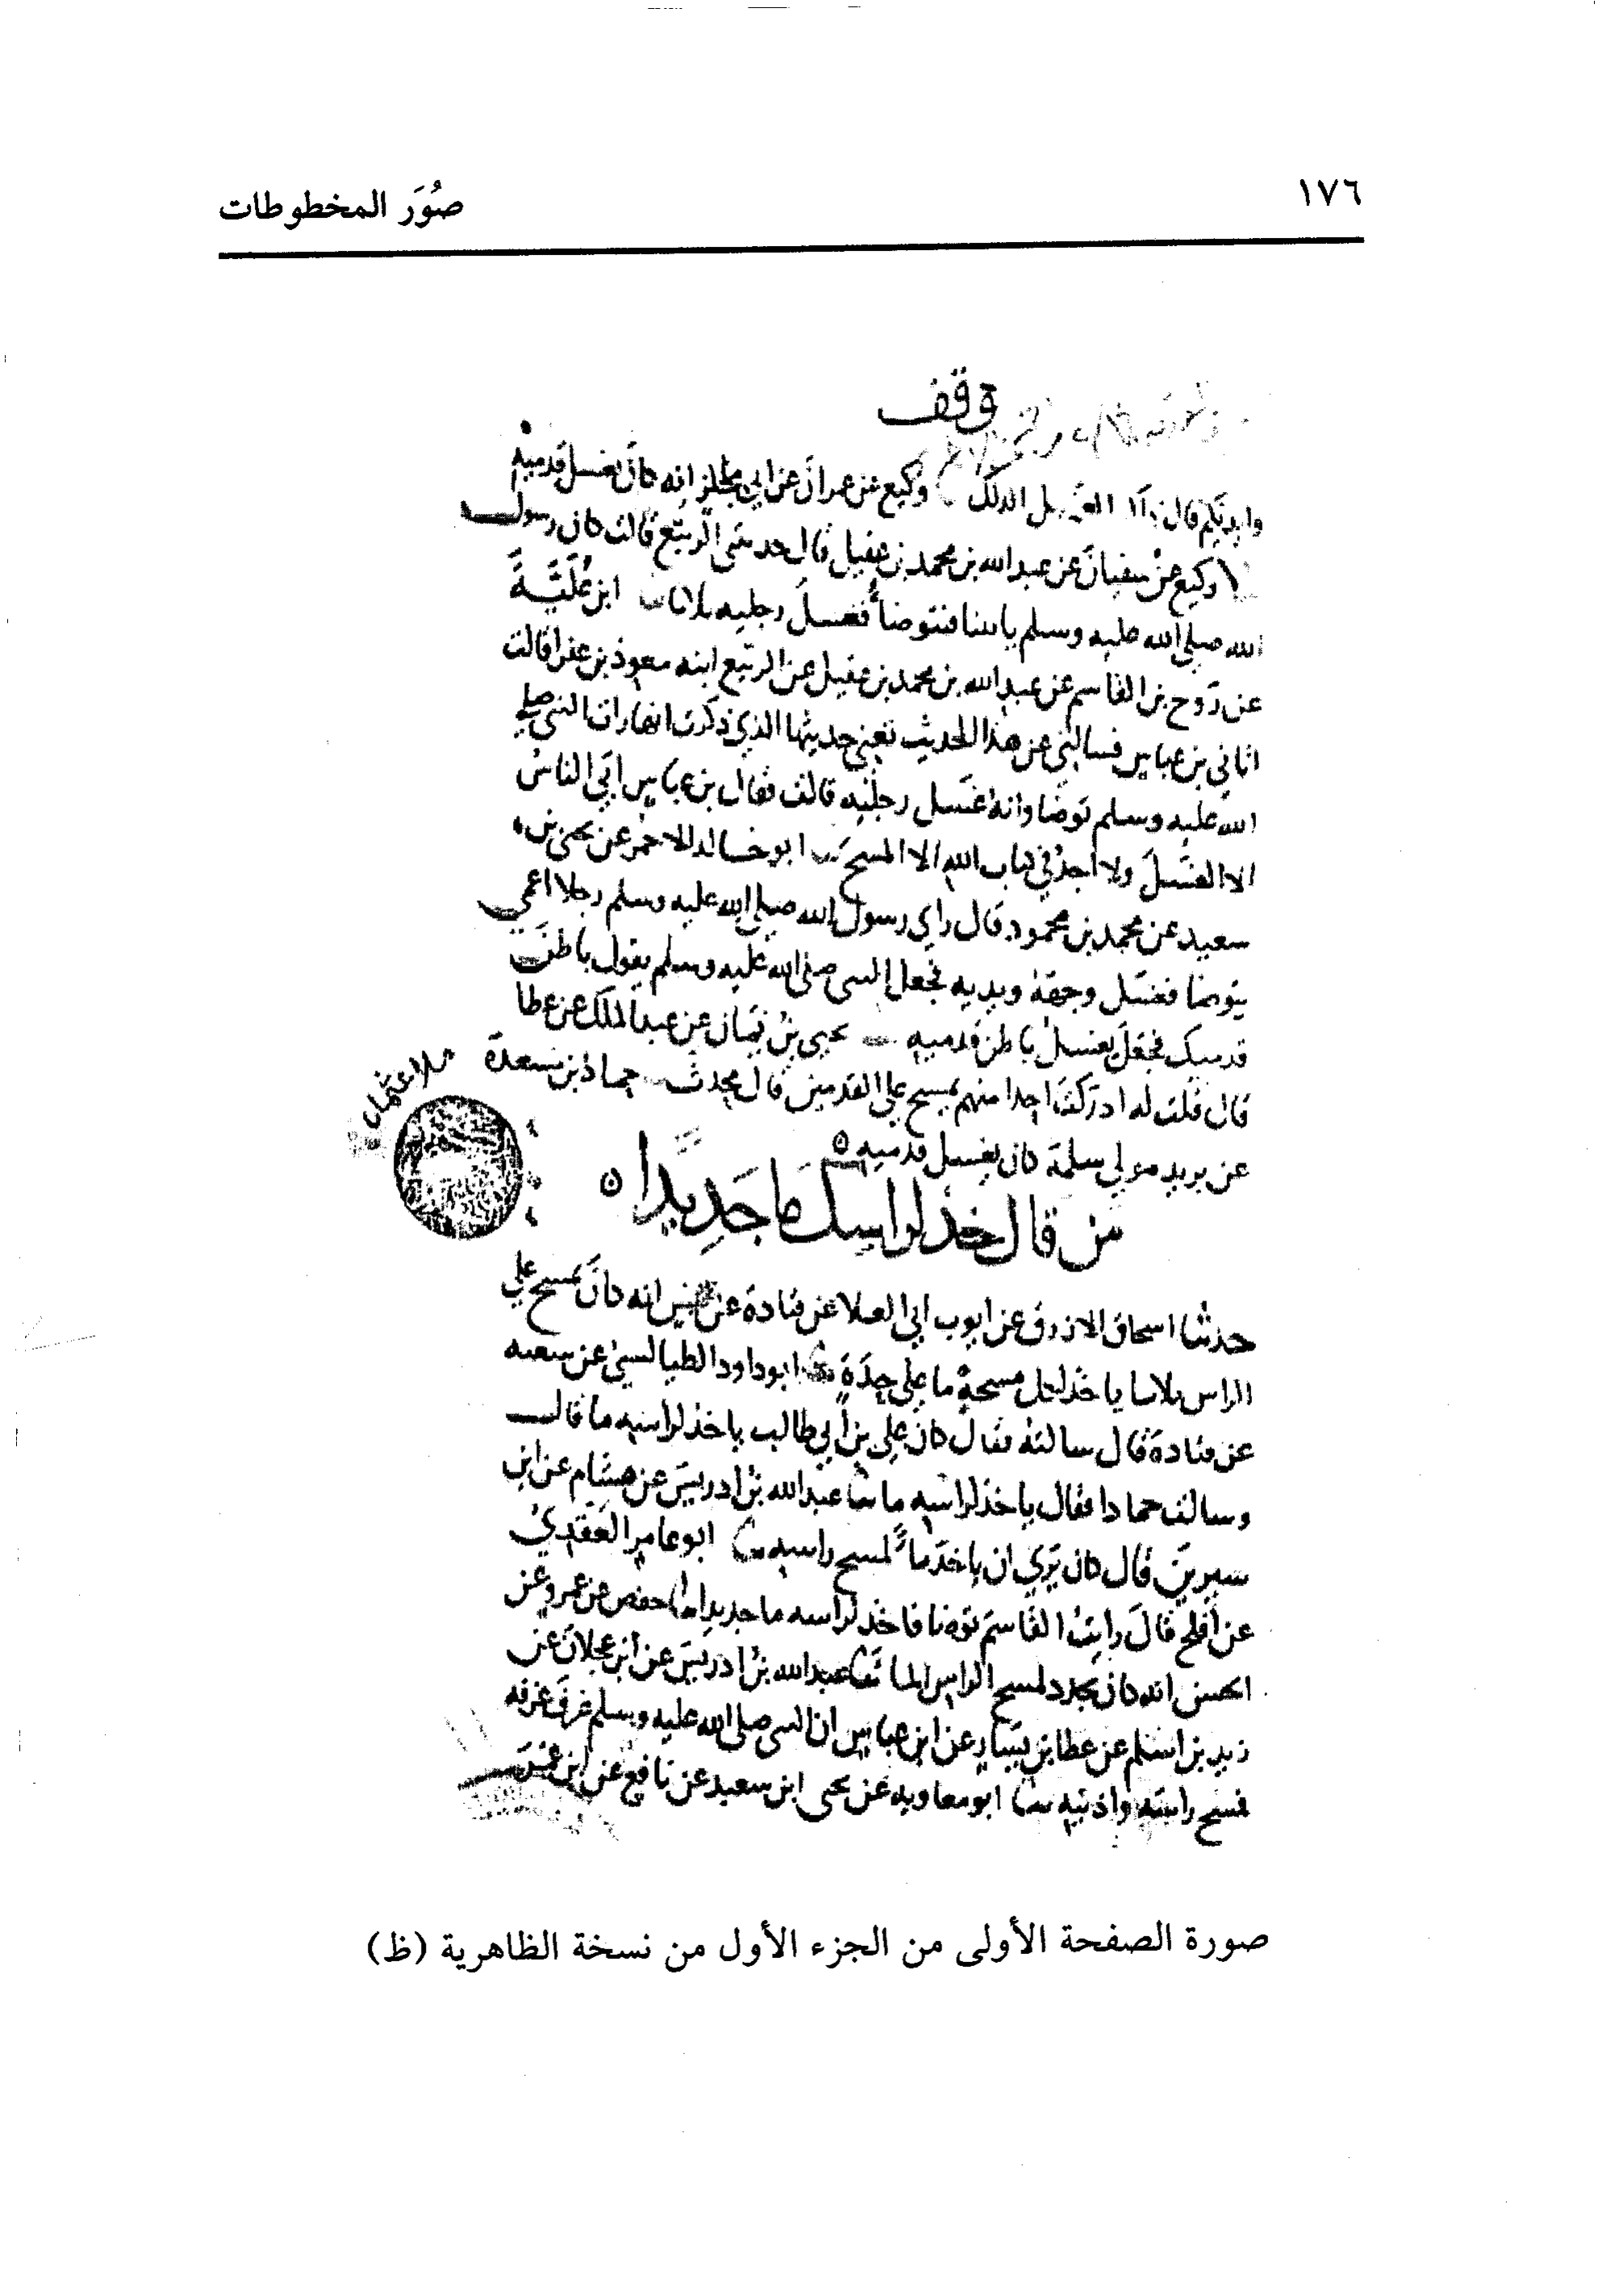 ١٧٦
صُوَر المخطوطات
وقف
وايديكم قال الدلك وكيع عن عمران عن ابي مجلز انه كان يغسل قدميه
وكيع عن سفيان عن عبد الله بن محمد بن عقيل قال حدثتني الربيع قالت كان رسول
الله صلى الله عليه وسلم ياتينا فتوضأ فغسل رجليه ثلاثا ابن عُلَيَّة
عن رَوح بن القاسم عن عبد الله بن محمد بن عقيل عن الربيع ابنه معوذ بن عفرا قالت
اتاني بن عباس فسالني عن هذا الحديث تعني حديثها الذي ذكرت انها رات النبي صلى
الله عليه وسلم توضا وانه غسل رجليه قالت فقال بن عباس ابي الناس
الا الغسل ولا اجد في كتاب الله الا المسح ابو خالد الاحمر عن يحيى بن
سعيد عن محمد بن محمود قال راي رسول الله صلى الله عليه وسلم رجلا اعمى
يتوضا فغسل وجهه ويديه فجعل النبي صلى الله عليه وسلم يقول باطن
قدميك فجعل يغسل باطن قدميه يحيى بن يمان عن عبد الملك عن عطا
قال قلت له ادركت احدا منهم يمسح على القدمين قال محدث حماد بن مسعدة
عن يزيد مولى سلمة كان يغسل قدميه ه
من قال خذ لراسك ما جَدِيدًا ه
حدثنا اسحاق الازرق عن ايوب ابي العلا عن قتادة عن انس انه كان يمسح على
الراس ثلاثا ياخذ لكل مسحة ما على حِدَةٍ ابو داود الطيالسي عن شعبه
عن قتادة قال سالته فقال كان علي بن ابي طالب ياخذ لراسه ما قال
وسالت حمادا فقال ياخذ لراسه ما ثنا عبد الله بن ادريس عن هشام عن ابن
سيرين قال كان يَرَى ان ياخذ ما لمسح راسه ثنا ابو عامر العَقَدي
عن أفلح قال رايت القاسم توضا فاخذ لراسه ما جديدا حفص عن عمرو عن
الحسن انه كان يجدد لمسح الراس الما ثنا عبد الله بن ادريس عن ابن عجلان عن
زيد بن اسلم عن عطا بن يسار عن ابن عباس ان النبي صلى الله عليه وسلم غرف غرفه
فمسح راسه واذنيه ثنا ابو معاويه عن يحيى ابن سعيد عن نافع عن ابن عمر
صورة الصفحة الأولى من الجزء الأول من نسخة الظاهرية (ظ)